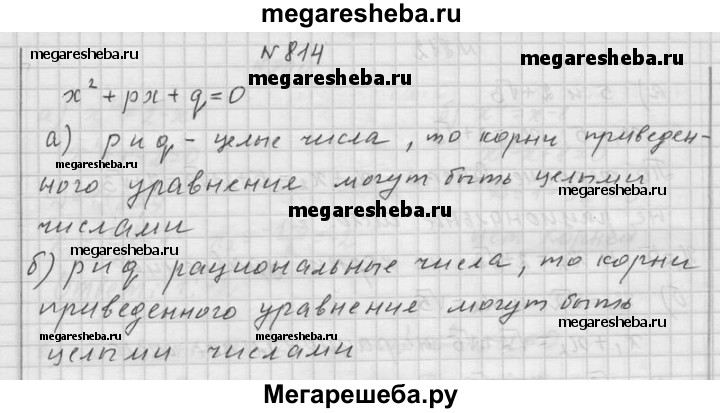 megaresheba.ru
N 814
megaresheba.ru megaresheba.ru
megaresheba.ru
x² + px + q = 0
а) р и q - целые числа, то корни приведен-
megaresheba.ru megaresheba.ru
ного уравнение могут быть целыми
megaresheba.ru
числами
megaresheba.ru
б) р и q рациональные числа, то корни
приведенного уравнение могут быть
megaresheba.ru megaresheba.ru megaresheba.ru
целыми числами
Мегарешеба.ру